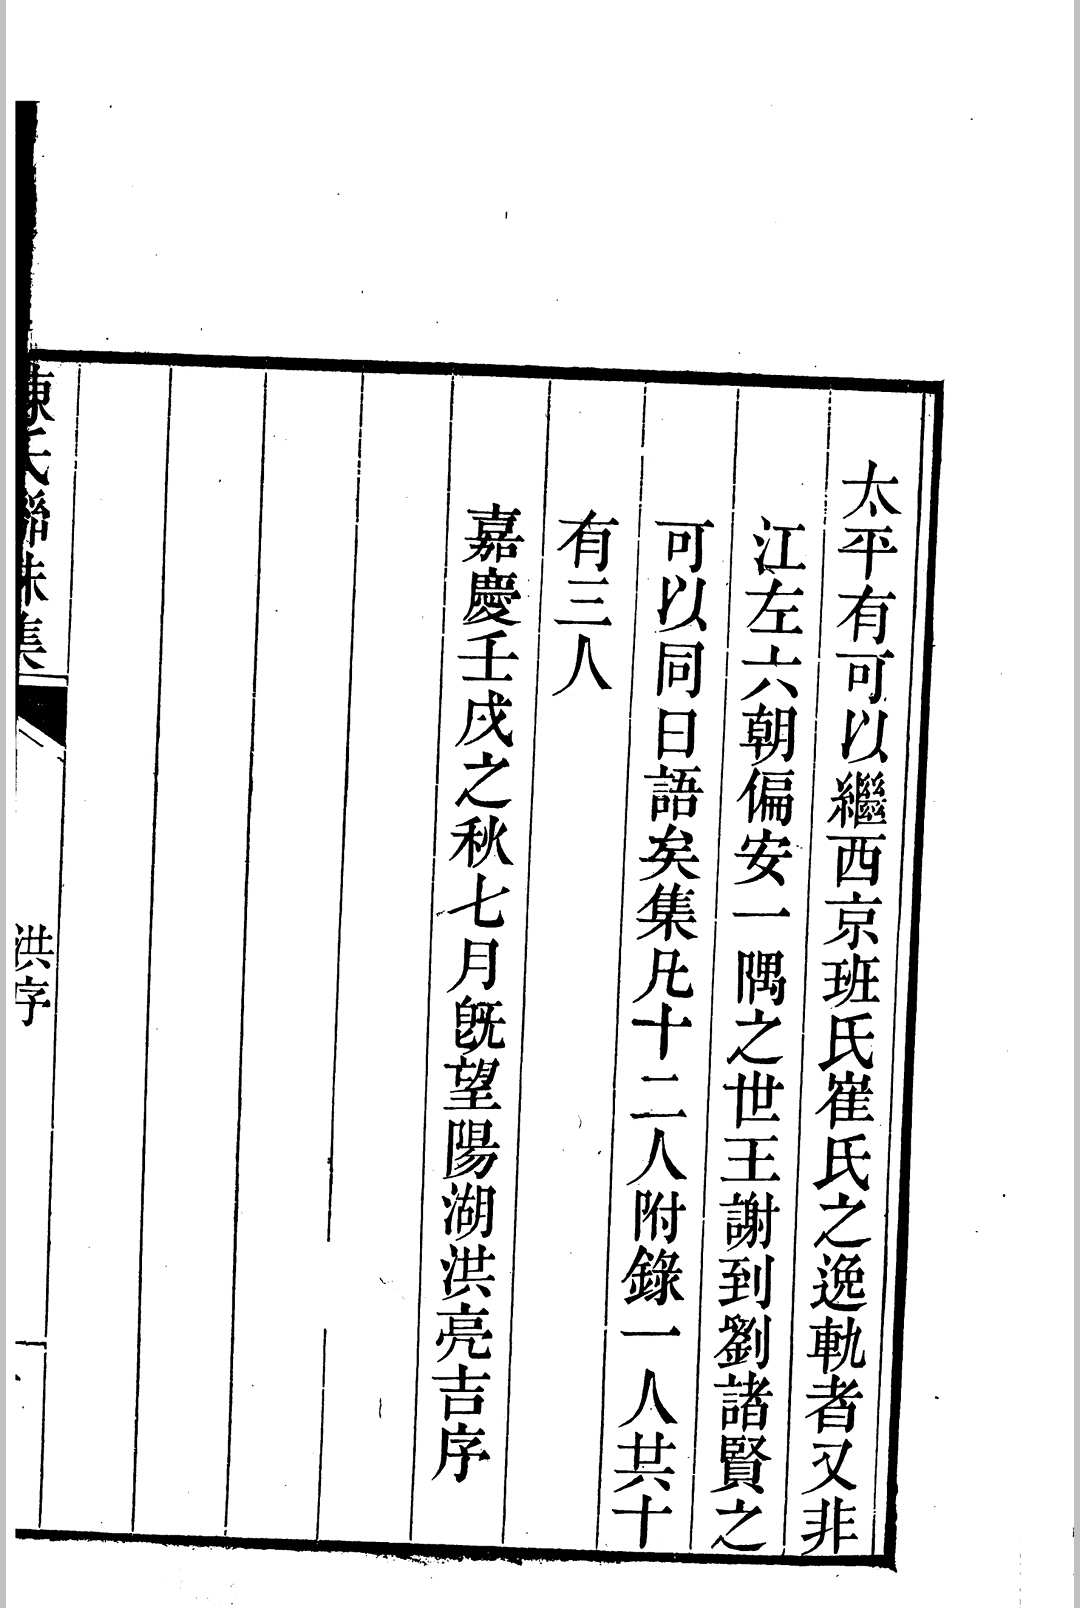 太平有可以繼西京班氏崔氏之逸軌者又非
江左六朝偏安一隅之世王謝到劉諸賢之
可以同日語矣集凡十二人附錄一人共十
有三人
嘉慶壬戌之秋七月既望陽湖洪亮吉序
陳氏聯珠集
洪序